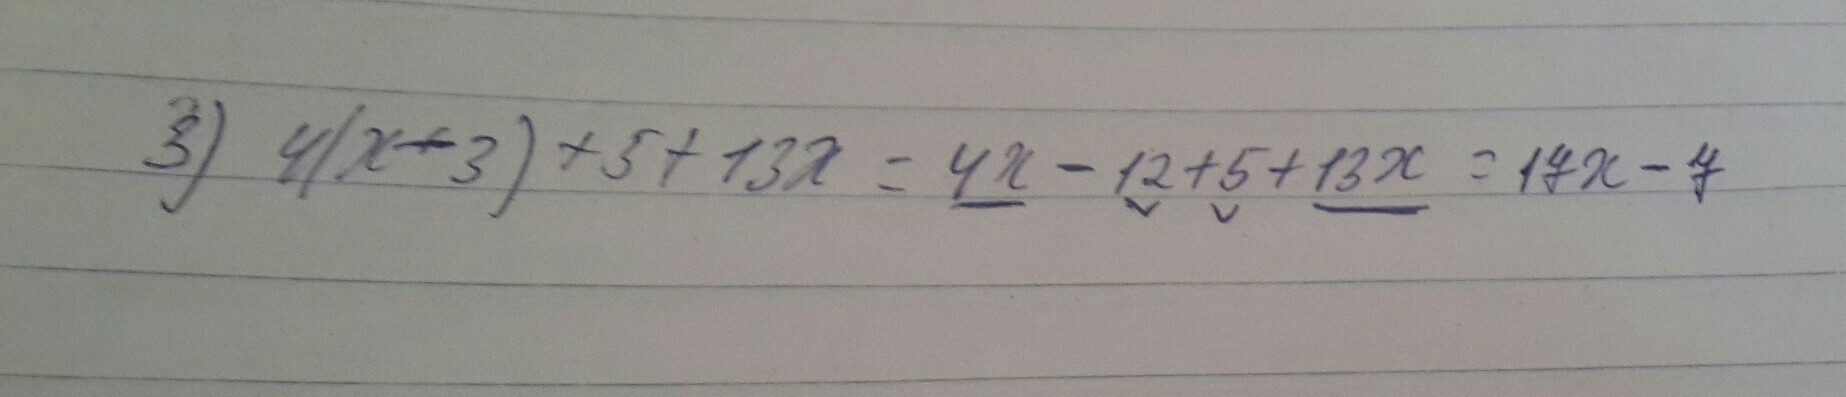 3) 4(x-3)+5+13x = 4x-12+5+13x = 17x-7